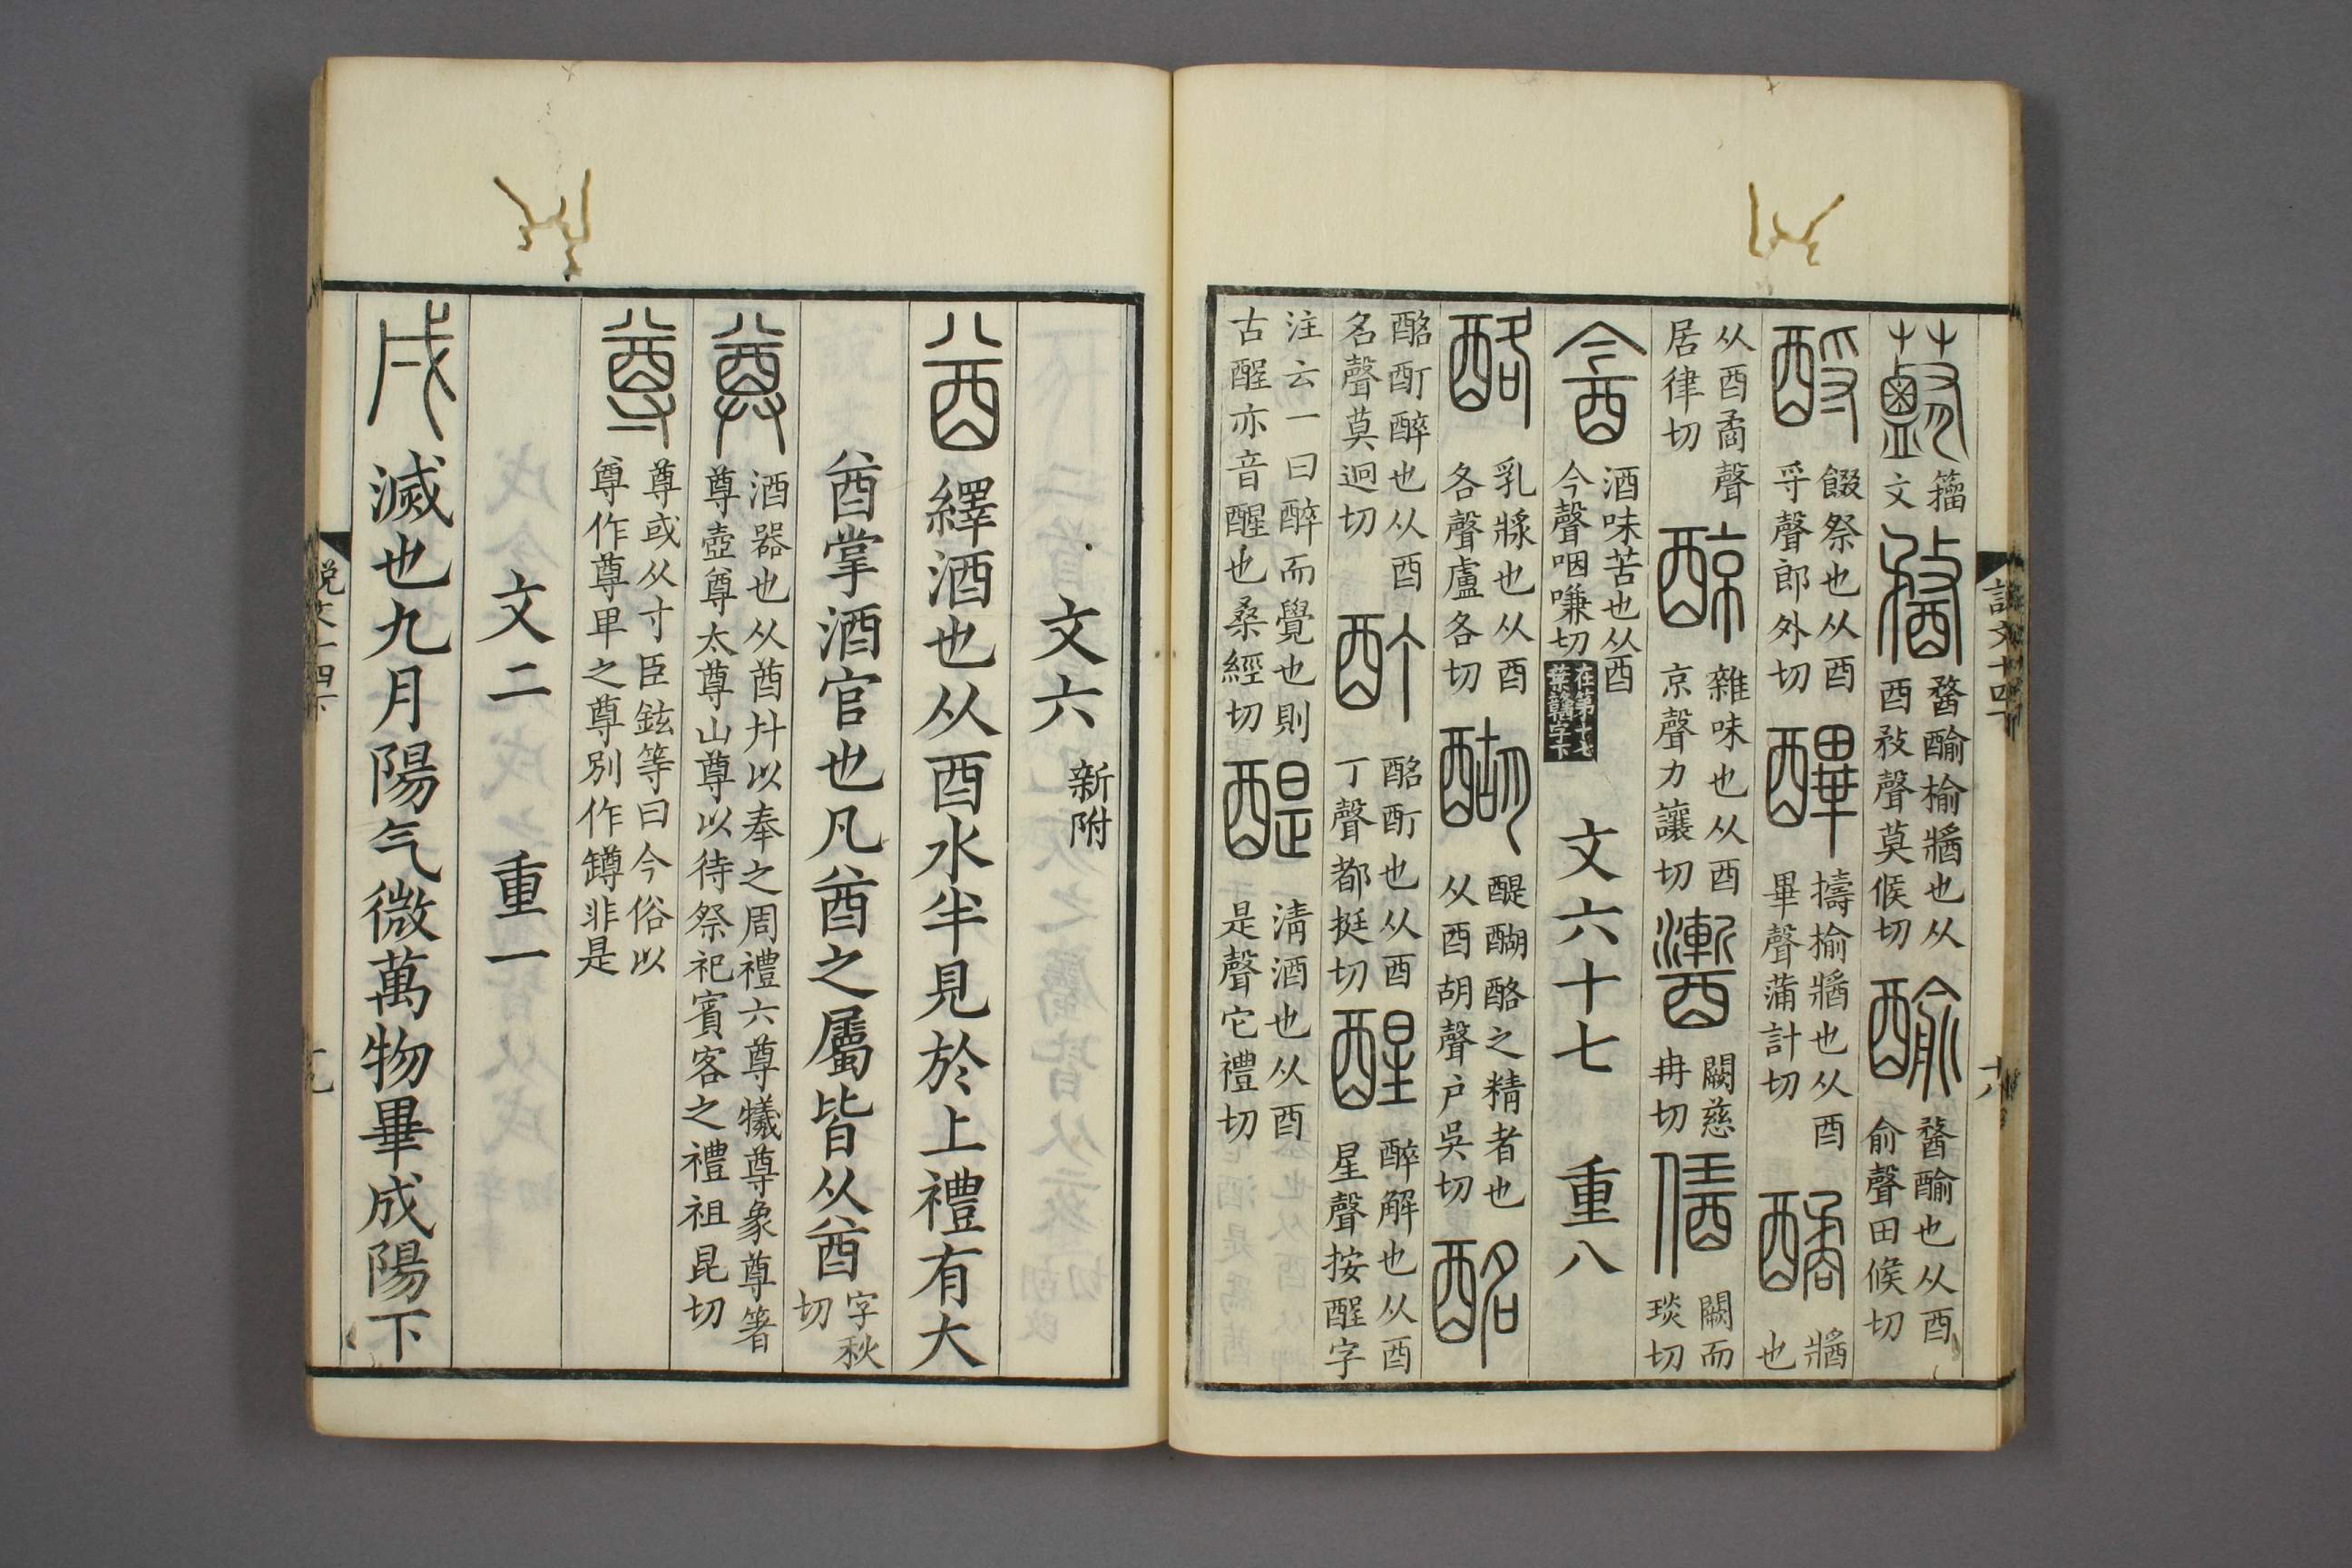 籀文 榆醬也从酉敄聲莫候切 也从酉俞聲田候切
酹 餟祭也从酉寽聲郎外切 擣榆醬也从酉畢聲蒲計切 醬也
从酉矞聲居律切 䣼 雜味也从酉京聲力讓切 闕慈冉切 闕而琰切
酓 酒味苦也从酉今聲咽嗛切 在第十七葉字下 文六十七 重八
酪 乳漿也从酉各聲盧各切 醐 醍醐酪之精者也从酉胡聲户吳切 酩
酩酊醉也从酉名聲莫迥切 酊 酩酊也从酉丁聲都挺切 醒 醉解也从酉星聲按酲字
注云一曰醉而覺也則古酲亦音醒也桑經切 醍 清酒也从酉是聲它禮切
說文十四下 十八
文六 新附
酋 繹酒也从酉水半見於上禮有大
酋掌酒官也凡酋之屬皆从酋 字秋切
尊 酒器也从酋廾以奉之周禮六尊犧尊象尊箸尊壺尊太尊山尊以待祭祀賓客之禮祖昆切
尊 尊或从寸臣鉉等曰今俗以尊作尊卑之尊別作罇非是
文二 重一
戌 滅也九月陽气微萬物畢成陽下
說文十四下 十九